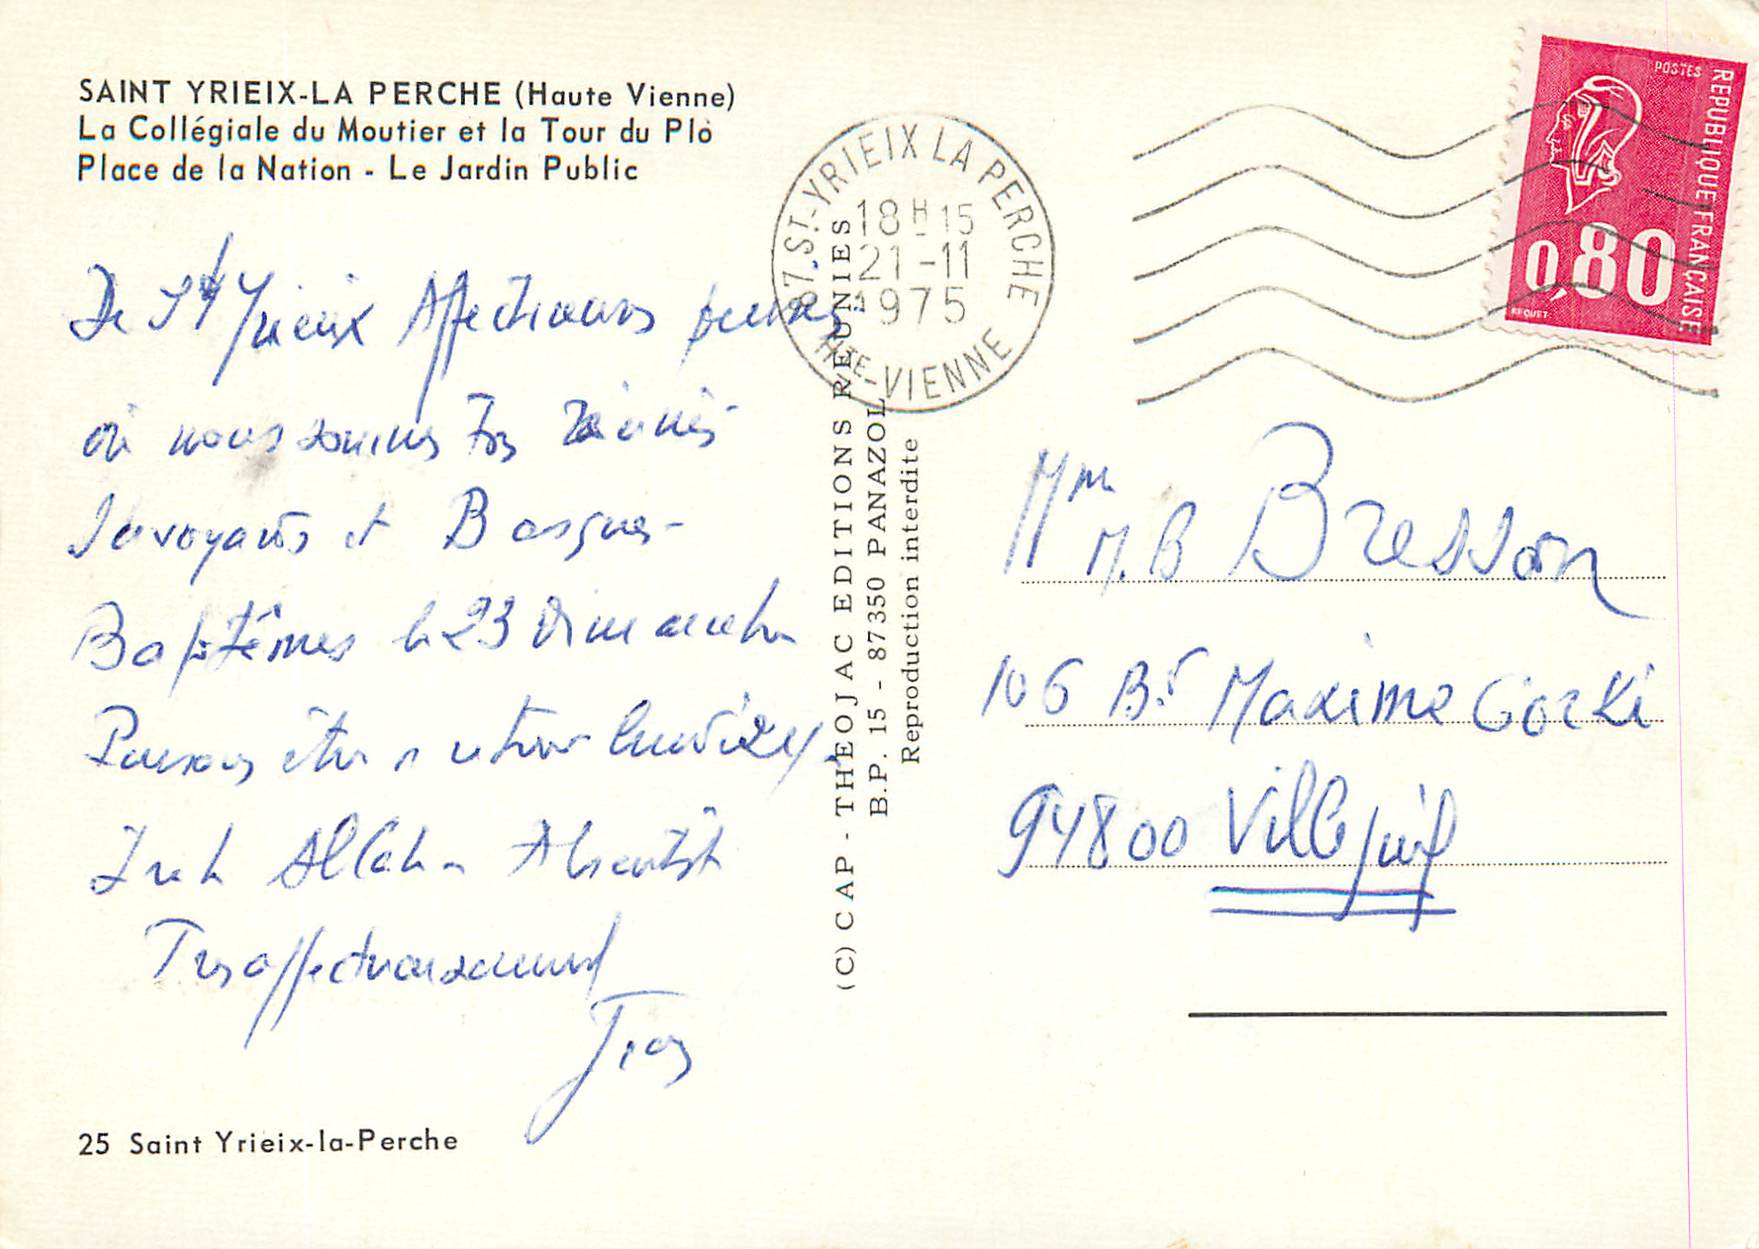 SAINT YRIEIX-LA PERCHE (Haute Vienne)
La Collégiale du Moutier et la Tour du Plo
Place de la Nation - Le Jardin Public
De St Yrieix Affectueuses pensées
où nous sommes Tous Réunis
Savoyards et Basques-
Baptêmes le 23 Dimanche
Pensons être a
Inch Allah -
Tres affectueusement
25 Saint Yrieix-la-Perche
(C) CAP - THEOJAC EDITIONS REUNIES
B.P. 15 - 87350 PANAZOL
Reproduction interdite
87.ST-YRIEIX LA PERCHE
18H15
21-11
1975
HTE-VIENNE
POSTES
REPUBLIQUE FRANÇAISE
0,80
BEQUET
Mme M.B Bresson
106 Bd Maxime Gorki
94800 Villejuif